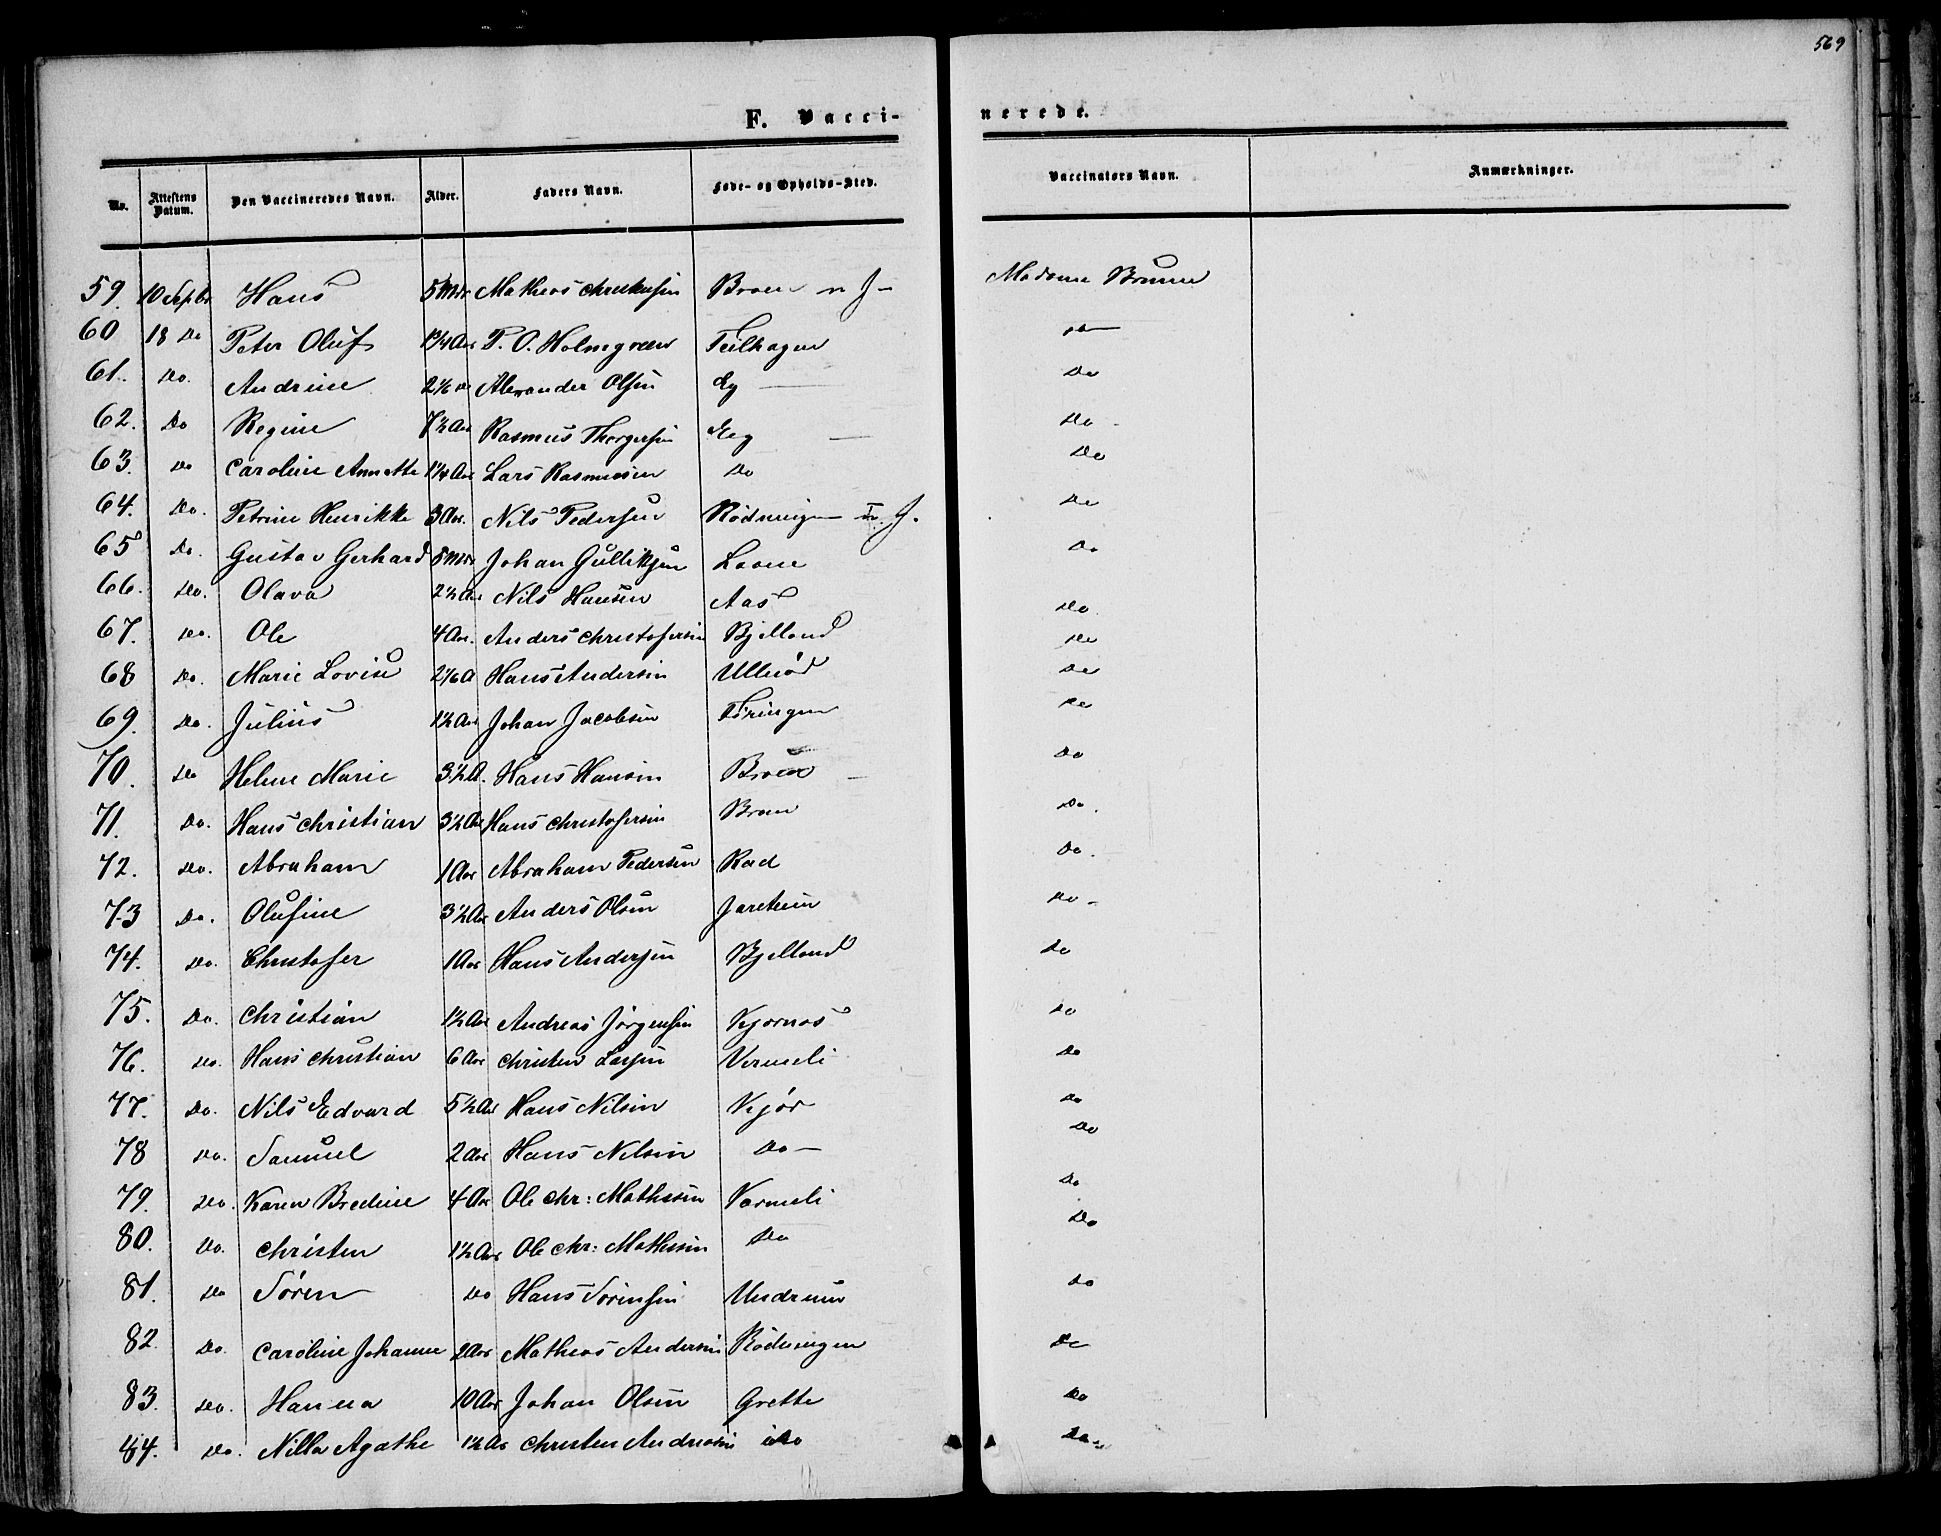 569
F. Vacci-nerede.
No. Attestens Datum. Den Vaccineredes Navn. Alder. Faders Navn. Føde- og Opholds-Sted. Vaccinators Navn. Anmærkninger.
59. 10 Septbr Hans 5 Mdr Mathias Christensen Madame
60 18 Do Peter Oluf 1¾ Aar P. O. Holmgreen Do
61. Do. Andrine 2 1/6 Do Alexander Olsen Eg Do
62. Do Regine 7½ Aar Rasmus Thorgersen Eeg Do
63. Do Caroline Annette 1¼ Aar Lars Rasmussen Do Do
64. Do. Petrine Henrikke 3 Aar. Nils Pedersen Rödningen Do
65 Do. Gustav Gerhard 8 Mdr Johan Gulliksen Do
66. Do. Olava 2½ Aar Nils Hansen Aas Do
67. Do. Ole 4 Aar. Anders Christofersen Bjelland Do
68 Do. Marie Lovise 2 1/6 A Hans Andersen Ullnöd Do
69. Do. Julius 1½ Aar Johan Jacobsen Do
70. Do Helene Marie 3½ A. Hans Hansen Do
71. Do. Hans Christian 3½ Aar Hans Christofersen Do.
72. Do. Abraham 1 Aar Abraham Pedersen Rad Do.
73 Do. Olufine 3½ Aar Anders Olsen Do
74. Do. Christofer 1 Aar Hans Andersen Bjelland Do
75. Do. Christian 1½ Aar Andreas Jörgensen Kjærnæs Do
76. Do. Hans Christian 6 Aar Christen Larsen Vermeli Do
77. Do. Nils Edvard 5½ Aar Hans Nilsen Kjör Do
78 Do. Samuel 2 Aar Hans Nilsen Do Do
79. Do. Karen Bredine 4 Aar Ole Chr: Mathesen Varmeli Do
80. Do. Christen 1½ Aar Ole Chr: Mathesen Do Do
81. Do Sören Do Hans Sörensen Undrum Do
82. Do. Caroline Johanne 2 Aar Mathias Andersen Rödningen Do
83. Do. Hanna 10 Aar Johan Olsen Grette Do
84. Do. Nilla Agathe 1½ Ar Christen Andersen Do Do